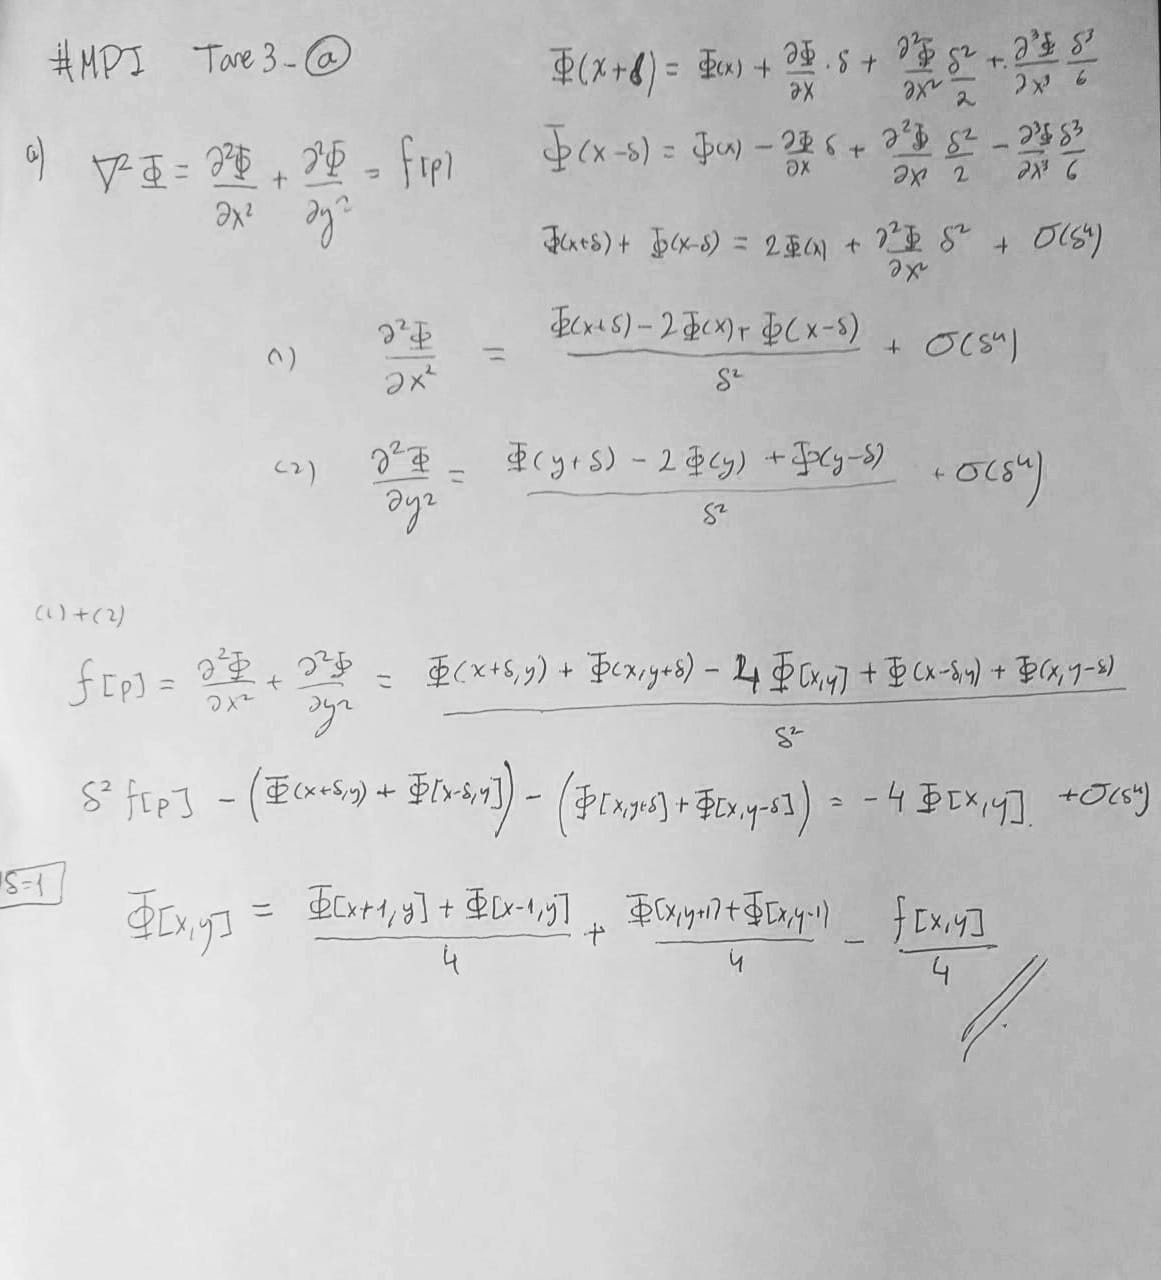 #MPI Tare 3-ⓐ
Φ(x+δ) = Φ(x) + ∂Φ/∂x · δ + ∂²Φ/∂x² δ²/2 + ∂³Φ/∂x³ δ³/6
a) ∇²Φ = ∂²Φ/∂x² + ∂²Φ/∂y² = f[p]
Φ(x-δ) = Φ(x) - ∂Φ/∂x δ + ∂²Φ/∂x² δ²/2 - ∂³Φ/∂x³ δ³/6
Φ(x+δ) + Φ(x-δ) = 2Φ(x) + ∂²Φ/∂x² δ² + O(δ⁴)
(1) ∂²Φ/∂x² = (Φ(x+δ) - 2Φ(x) + Φ(x-δ))/δ² + O(δ⁴)
(2) ∂²Φ/∂y² = (Φ(y+δ) - 2Φ(y) + Φ(y-δ))/δ² + O(δ⁴)
(1)+(2)
f[p] = ∂²Φ/∂x² + ∂²Φ/∂y² = (Φ(x+δ,y) + Φ(x,y+δ) - 4Φ[x,y] + Φ(x-δ,y) + Φ(x,y-δ))/δ²
δ² f[p] - (Φ(x+δ,y) + Φ[x-δ,y]) - (Φ[x,y+δ] + Φ[x,y-δ]) = -4Φ[x,y] + O(δ⁴)
δ=1
Φ[x,y] = (Φ[x+1,y] + Φ[x-1,y])/4 + (Φ[x,y+1] + Φ[x,y-1))/4 - f[x,y]/4 //